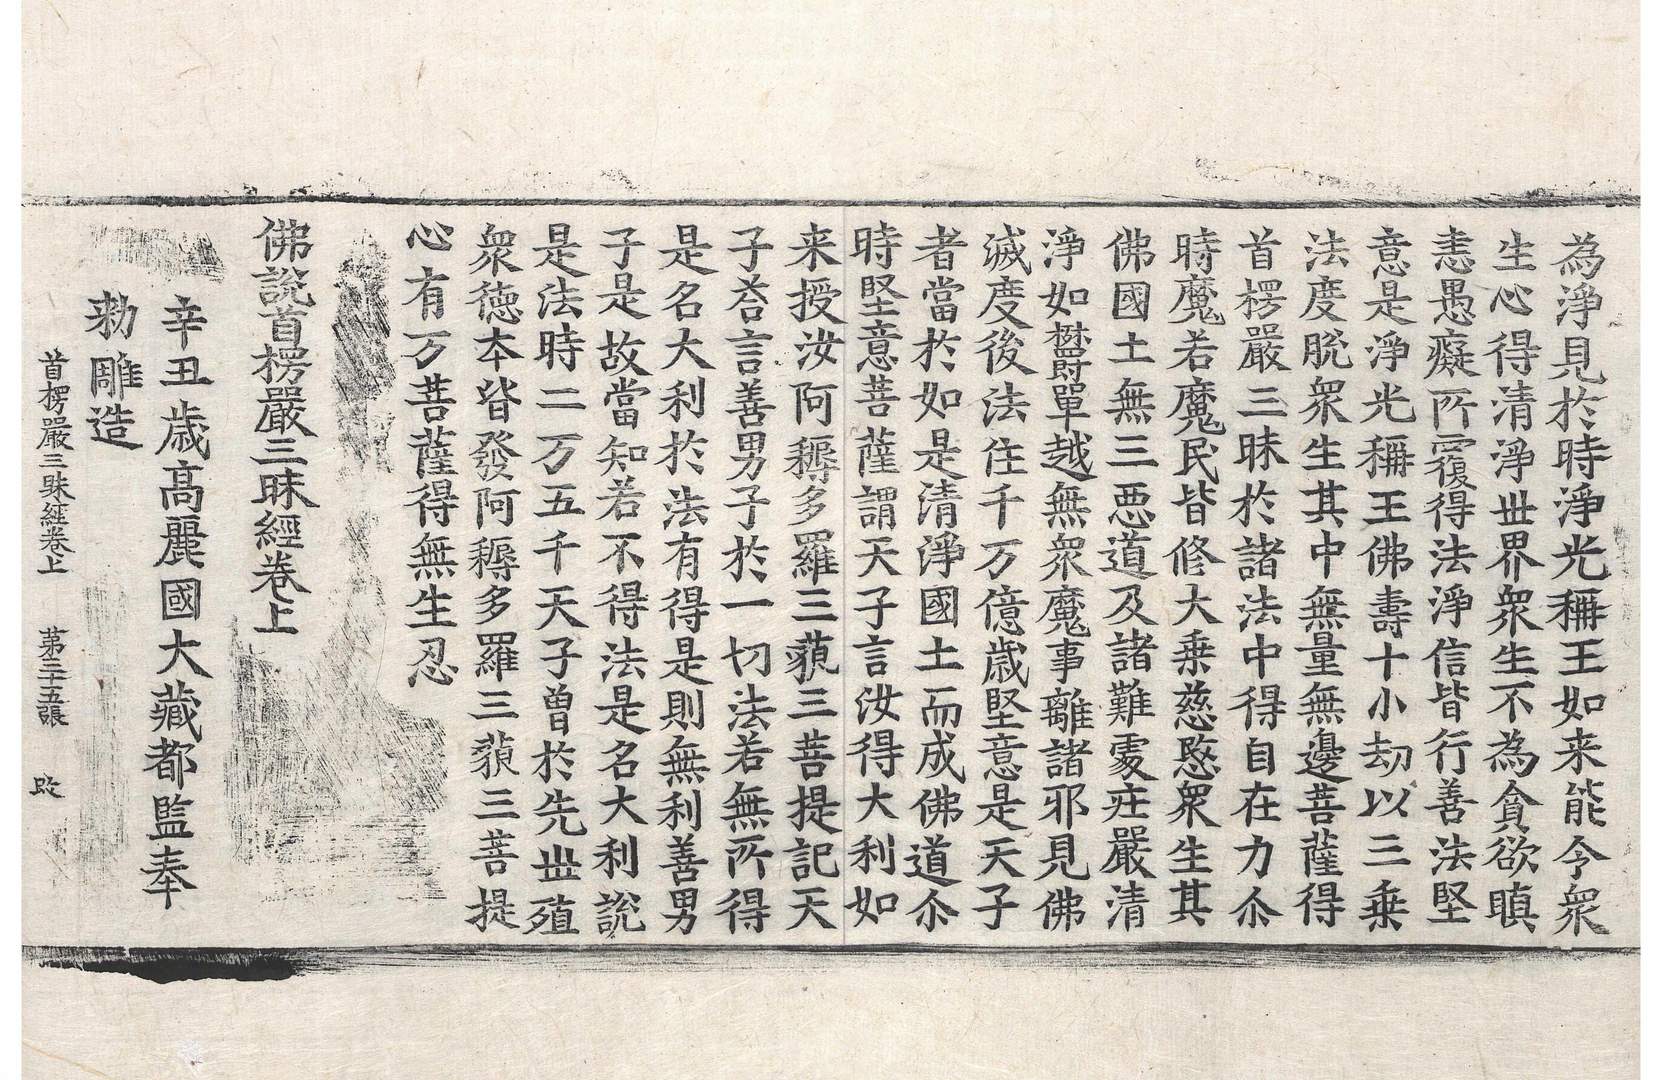 為淨見於時淨光稱王如来能令衆
生心得清淨世界衆生不為貪欲瞋
恚愚癡所覆得法淨信皆行善法堅
意是淨光稱王佛壽十小劫以三乗
法度脫衆生其中無量無邊菩薩得
首楞嚴三昧於諸法中得自在力尒
時魔若魔民皆修大乗慈愍衆生其
佛國土無三惡道及諸難處庄嚴清
淨如欝單越無衆魔事離諸邪見佛
滅度後法住千万億歲堅意是天子
者當於如是清淨國土而成佛道尒
時堅意菩薩謂天子言汝得大利如
来授汝阿耨多羅三藐三菩提記天
子荅言善男子於一切法若無所得
是名大利於法有得是則無利善男
子是故當知若不得法是名大利說
是法時二万五千天子曾於先世殖
衆徳本皆發阿耨多羅三藐三菩提
心有万菩薩得無生忍
佛說首楞嚴三昧經卷上
辛丑歳高麗國大藏都監奉
勑雕造
首楞嚴三昧經卷上 第三十五張